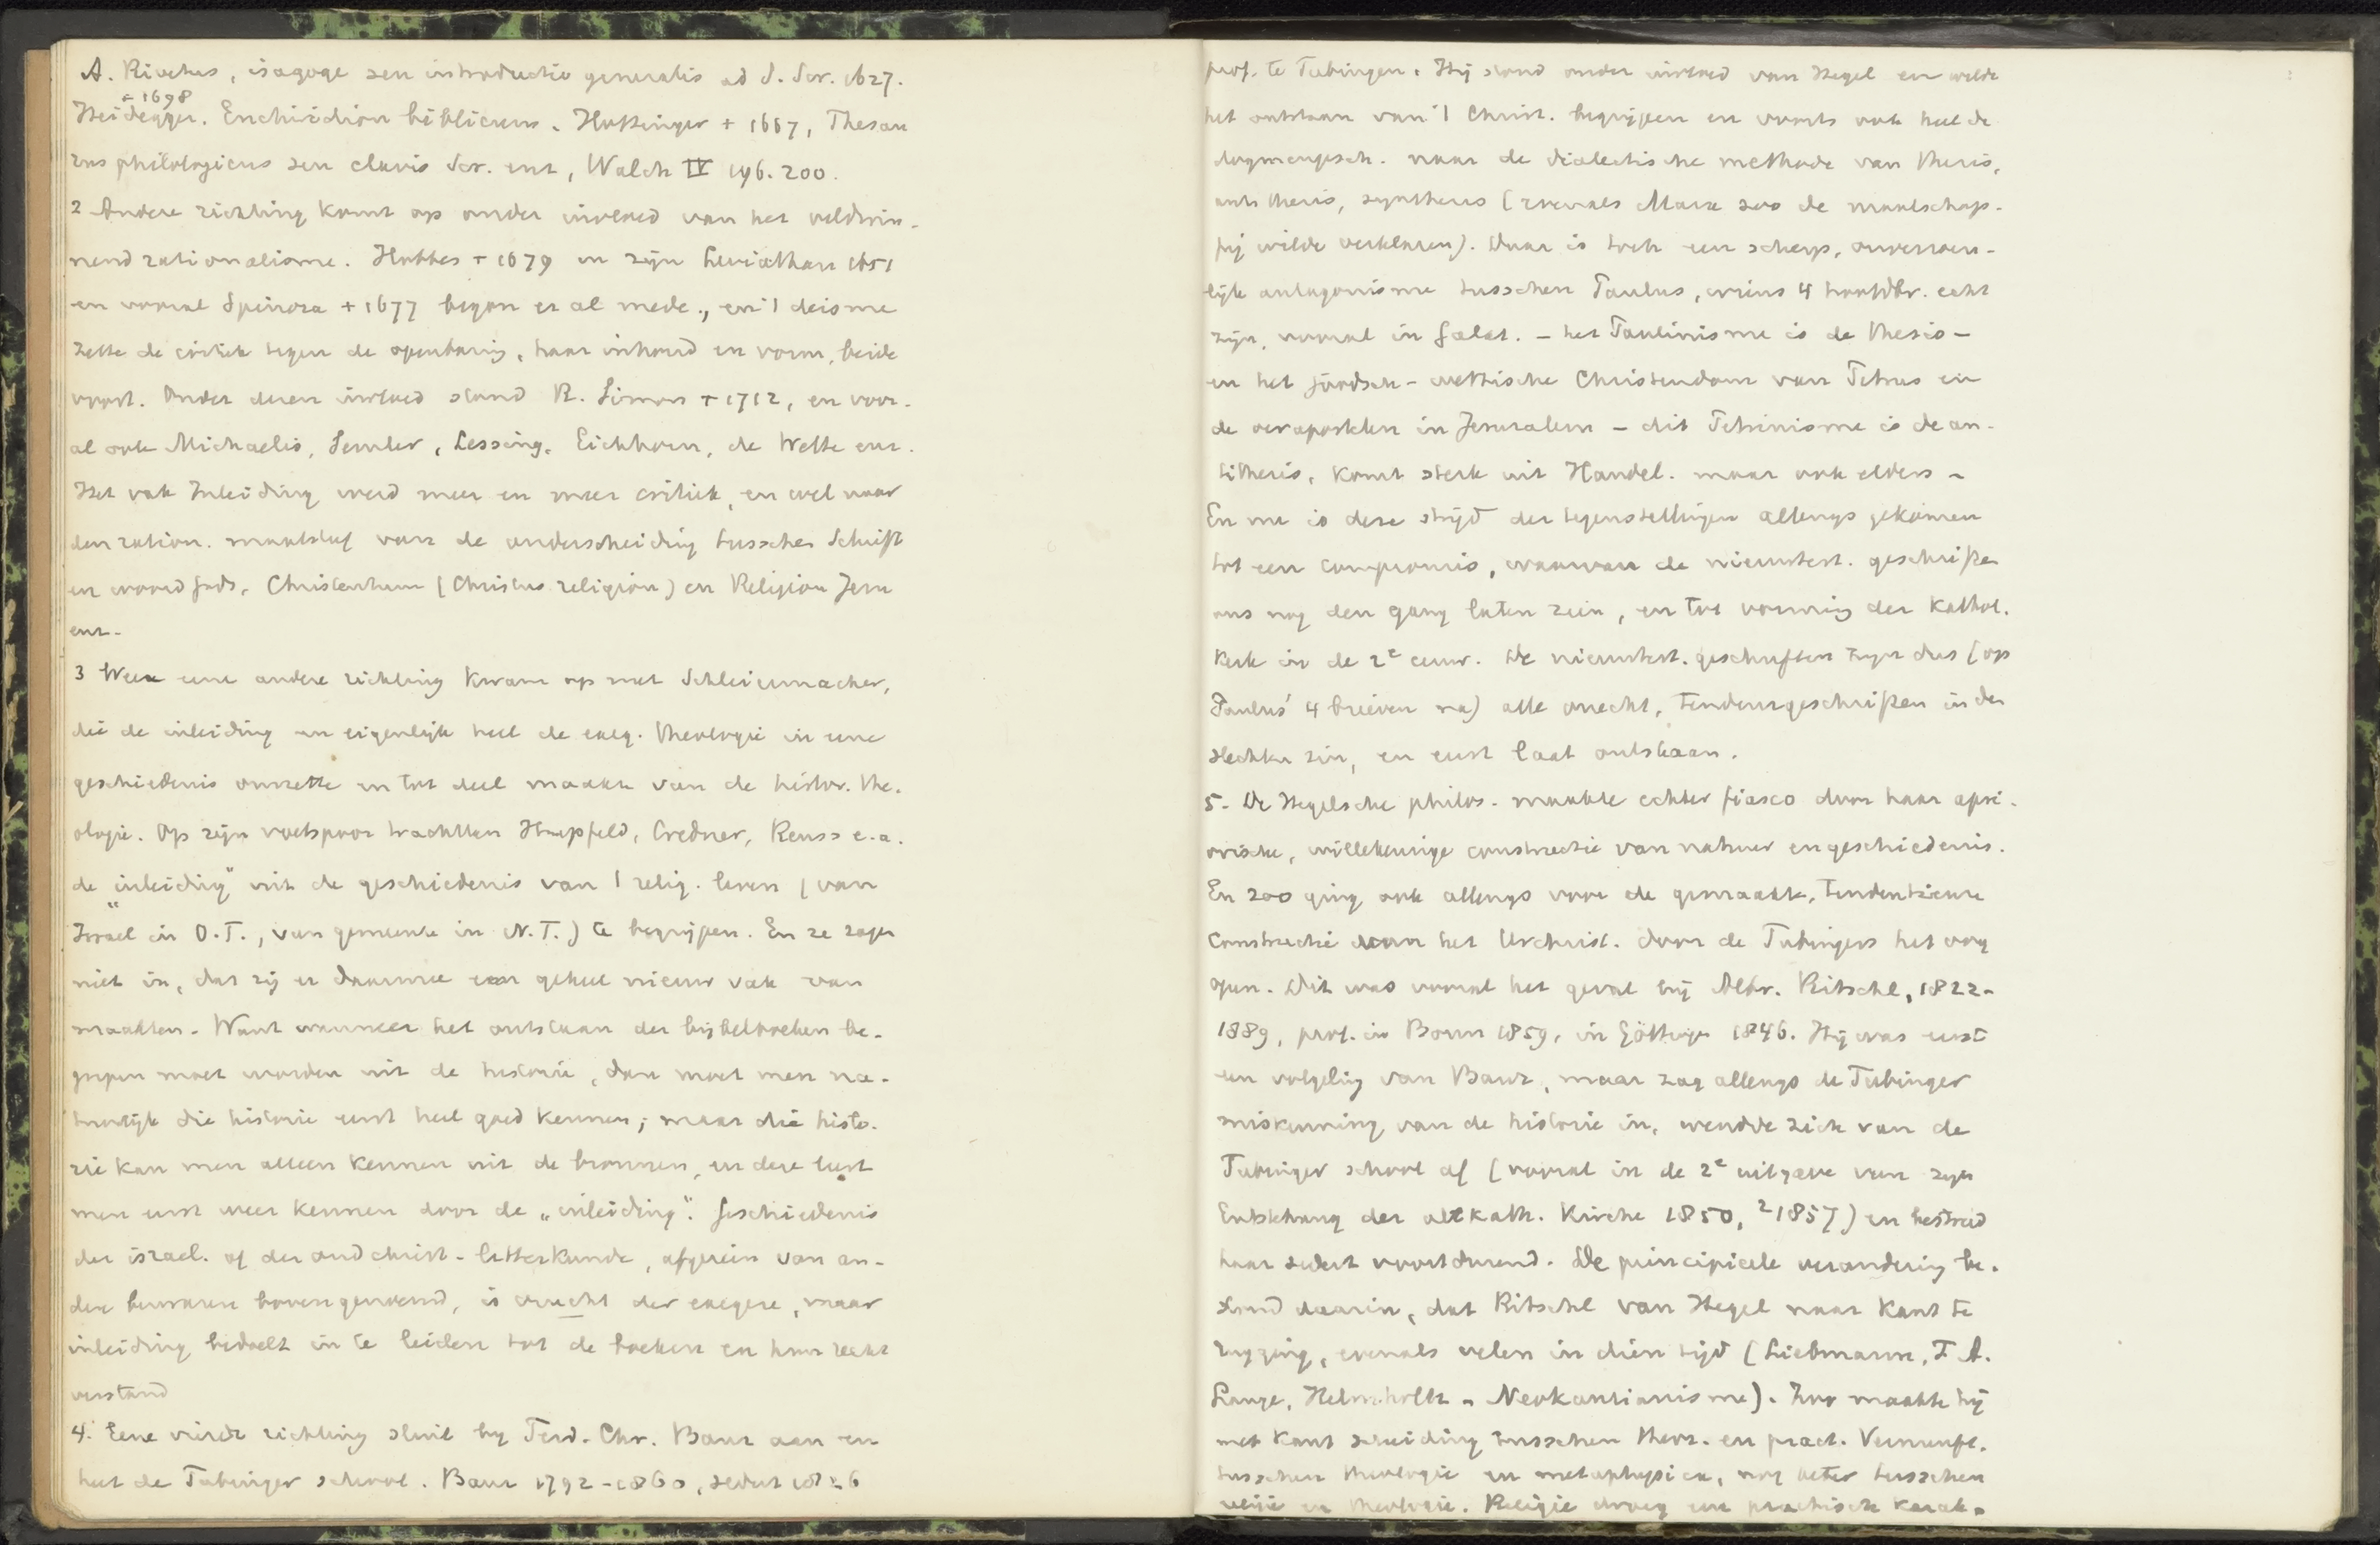 A. Rivetus, isagoge seu introductio generalis ad S. Scr. 1627.
+ 1698
Heidegger. Enchiridion biblicum. Hottinger + 1667, Thesau
rus philologicus seu clavis Scr. enz, Walch IV 196. 200.
2 Andere richting komt op onder invloed van het veldwin-
nend rationalisme. Hobbes + 1679 in zijn Leviathan 1651
en vooral Spinoza + 1677 begon er al mede, en 't deisme
zette de critiek tegen de openbaring, haar inhoud en vorm, beide
voort. Onder dezen invloed stond R. Simon + 1712, en voor-
al ook Michaelis, Semler, Lessing, Eichhorn, de Wette enz.
Het vak Inleiding werd meer en meer critiek, en wel naar
den ration. maatstaf van de onderscheiding tusschen Schrift
en woord Gods, Christenthum (Christus religion) en Religion Jesu
enz.
3 Weer eene andere richting kwam op met Schleiermacher,
die de inleiding en eigenlijk heel de exeg. theologie in eene
geschiedenis omzette en tot deel maakte van de histor. the-
ologie. Op zijn voetspoor trachtten Hupfeld, Credner, Reuss e.a.
de „inleiding" uit de geschiedenis van 't relig. leven (van
Israel in O.T., van gemeente in N.T.) te begrijpen. En ze zagen
niet in, dat zij er daarmee een geheel nieuw vak van
maakten. Want wanneer het ontstaan der bijbelboeken be-
grepen moet worden uit de historie, dan moet men na-
tuurlijk die historie eerst heel goed kennen; maar die histo-
rie kan men alleen kennen uit de bronnen, en deze leert
men eerst weer kennen door de „inleiding". Geschiedenis
der israel. of der oud christ. letterkunde, afgezien van an-
dere bezwaren bovengenoemd, is vrucht der exegese, maar
inleiding bedoelt in te leiden tot de boeken en hun recht
verstand
4. Eene vierde richting sluit bij Ferd. Chr. Baur aan en
heel de Tubinger school. Baur 1792-1860, sedert 1826
prof. te Tubingen. Hij stond onder invloed van Hegel en wilde
het ontstaan van 't Christ. begrijpen en voorts ook heel de
dogmengesch. naar de dialectische methode van thesis,
antithesis, synthesis (zooals Marx zoo de maatschap-
pij wilde verklaren). Daar is toch een scherp, onverzoen-
lijk antagonisme tusschen Paulus, wiens 4 hoofdbr. echt
zijn, vooral in Galat. - het Paulinisme is de thesis -
en het joodsch-wettische Christendom van Petrus en
de oerapostelen in Jerusalem - dit Petrinisme is de an-
tithesis, komt sterk uit Handel. maar ook elders -
En nu is deze strijd der tegenstellingen allengs gekomen
tot een compromis, waarvan de nieuwtest. geschriften
ons nog den gang laten zien, en tot vorming der Kathol.
Kerk in de 2e eeuw. De nieuwtest. geschriften zijn dus (op
Paulus' 4 brieven na) alle onecht, tendenzgeschriften in den
slechten zin, en eerst laat ontstaan.
5. De Hegelsche philos. maakte echter fiasco door haar apri-
orische, willekeurige constructie van natuur en geschiedenis.
En zoo ging ook allengs voor de gemaakte, tendentieuze
constructie van het Urchrist. door de Tubingers het oog
open. Dit was vooral het geval bij Albr. Ritschl, 1822-
1889, prof. in Bonn 1859, in Göttingen 1846. Hij was eerst
een volgeling van Baur, maar zag allengs de Tubinger
miskenning van de historie in, wendde zich van de
Tubinger school af (vooral in de 2e uitgave van zijn
Entstehung der altkath. Kirche 1850, ²1857) en bestreed
haar sedert voortdurend. De principieele verandering be-
stond daarin, dat Ritschl van Hegel naar Kant te
rugging, evenals velen in dien tijd (Liebmann, F. A.
Lange, Helmholtz - Neokantianisme). Zoo maakte hij
met Kant scheiding tusschen theor. en pract. Vernunft.
tusschen theologie en metaphysica, nog beter tusschen
religie en theologie. Religie droeg een practisch karak-